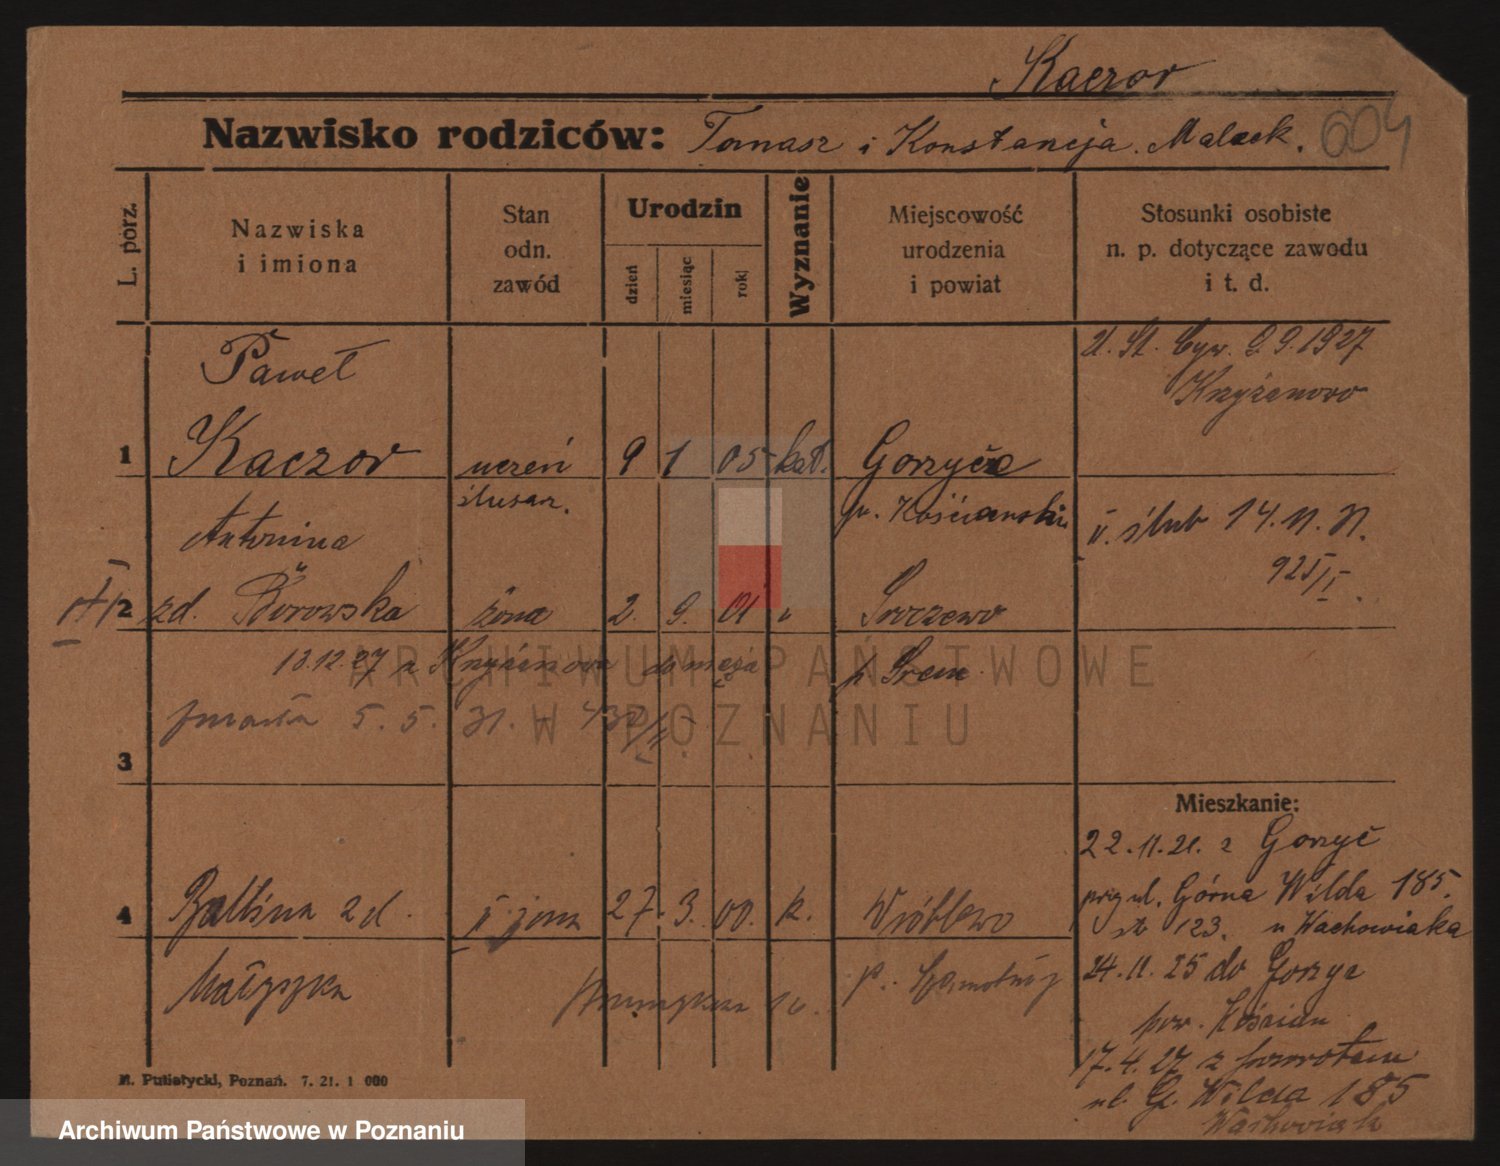 Kaczor
Nazwisko rodziców: Tomasz i Konstancja Malack. 604
L. porz.
Nazwiska i imiona
Stan odn. zawód
Urodzin
dzień
miesiąc
rok
Wyznanie
Miejscowość urodzenia i powiat
Stosunki osobiste n. p. dotyczące zawodu i t. d.
Paweł
U. St. Cyw. 2.9.1927
Krzyżanowo
1 Kaczor uczeń 9 1 05 kat. Gorzyce
ślusar. p. Kościański
Antonina
II. ślub 14.11.31.
925/I.
2 zd. Borowska żona 2. 9. 01 " Sroczewo
13.12.27 z Krzyżanowa do męża p. Śrem
zmarła 5.5. 31.
3
Mieszkanie:
22.11.21. z Gorzyc
4 Balbina zd. II żona 27. 3. 00. k. Wróblewo
przy ul. Górna Wilda 185.
123. u Wachowiaka
Małyszka
p. Szamotuły
24.11.25 do Gorzyc
pow. Kościan
17.4.27 z powrotem
ul. G. Wilda 185
Wachowiak
M. Putiatycki, Poznań. 7. 21. 1 000
ARCHIWUM PAŃSTWOWE
W POZNANIU
Archiwum Państwowe w Poznaniu